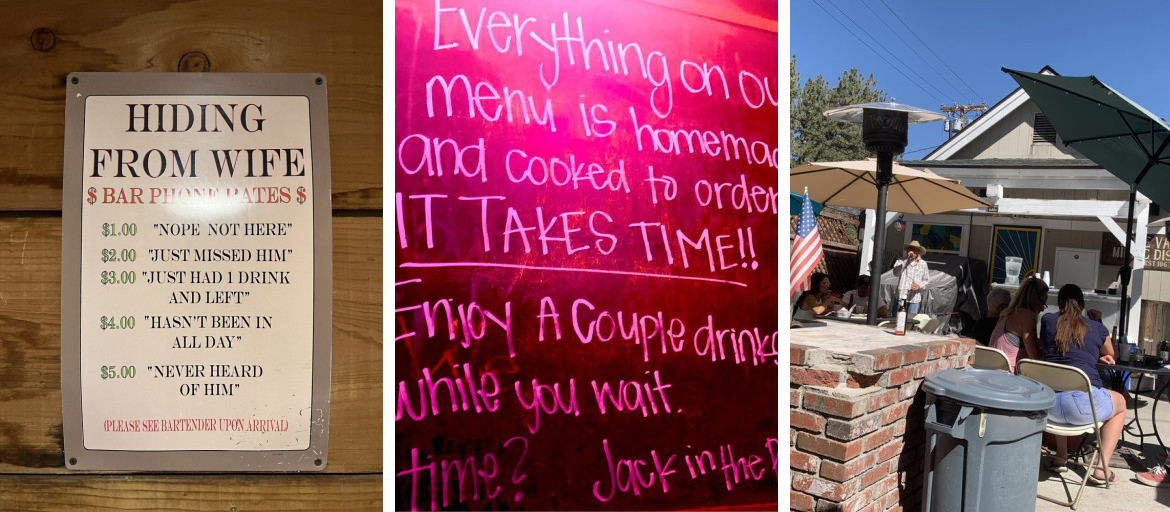 HIDING
FROM WIFE
$ BAR PHONE RATES $
$1.00 "NOPE NOT HERE"
$2.00 "JUST MISSED HIM"
$3.00 "JUST HAD 1 DRINK
AND LEFT"
$4.00 "HASN'T BEEN IN
ALL DAY"
$5.00 "NEVER HEARD
OF HIM"
(PLEASE SEE BARTENDER UPON ARRIVAL)
Everything on ou
menu is homemad
and cooked to order
IT TAKES TIME!!
Enjoy A Couple drinks
while you wait.
time? Jack in the
VA
DIS